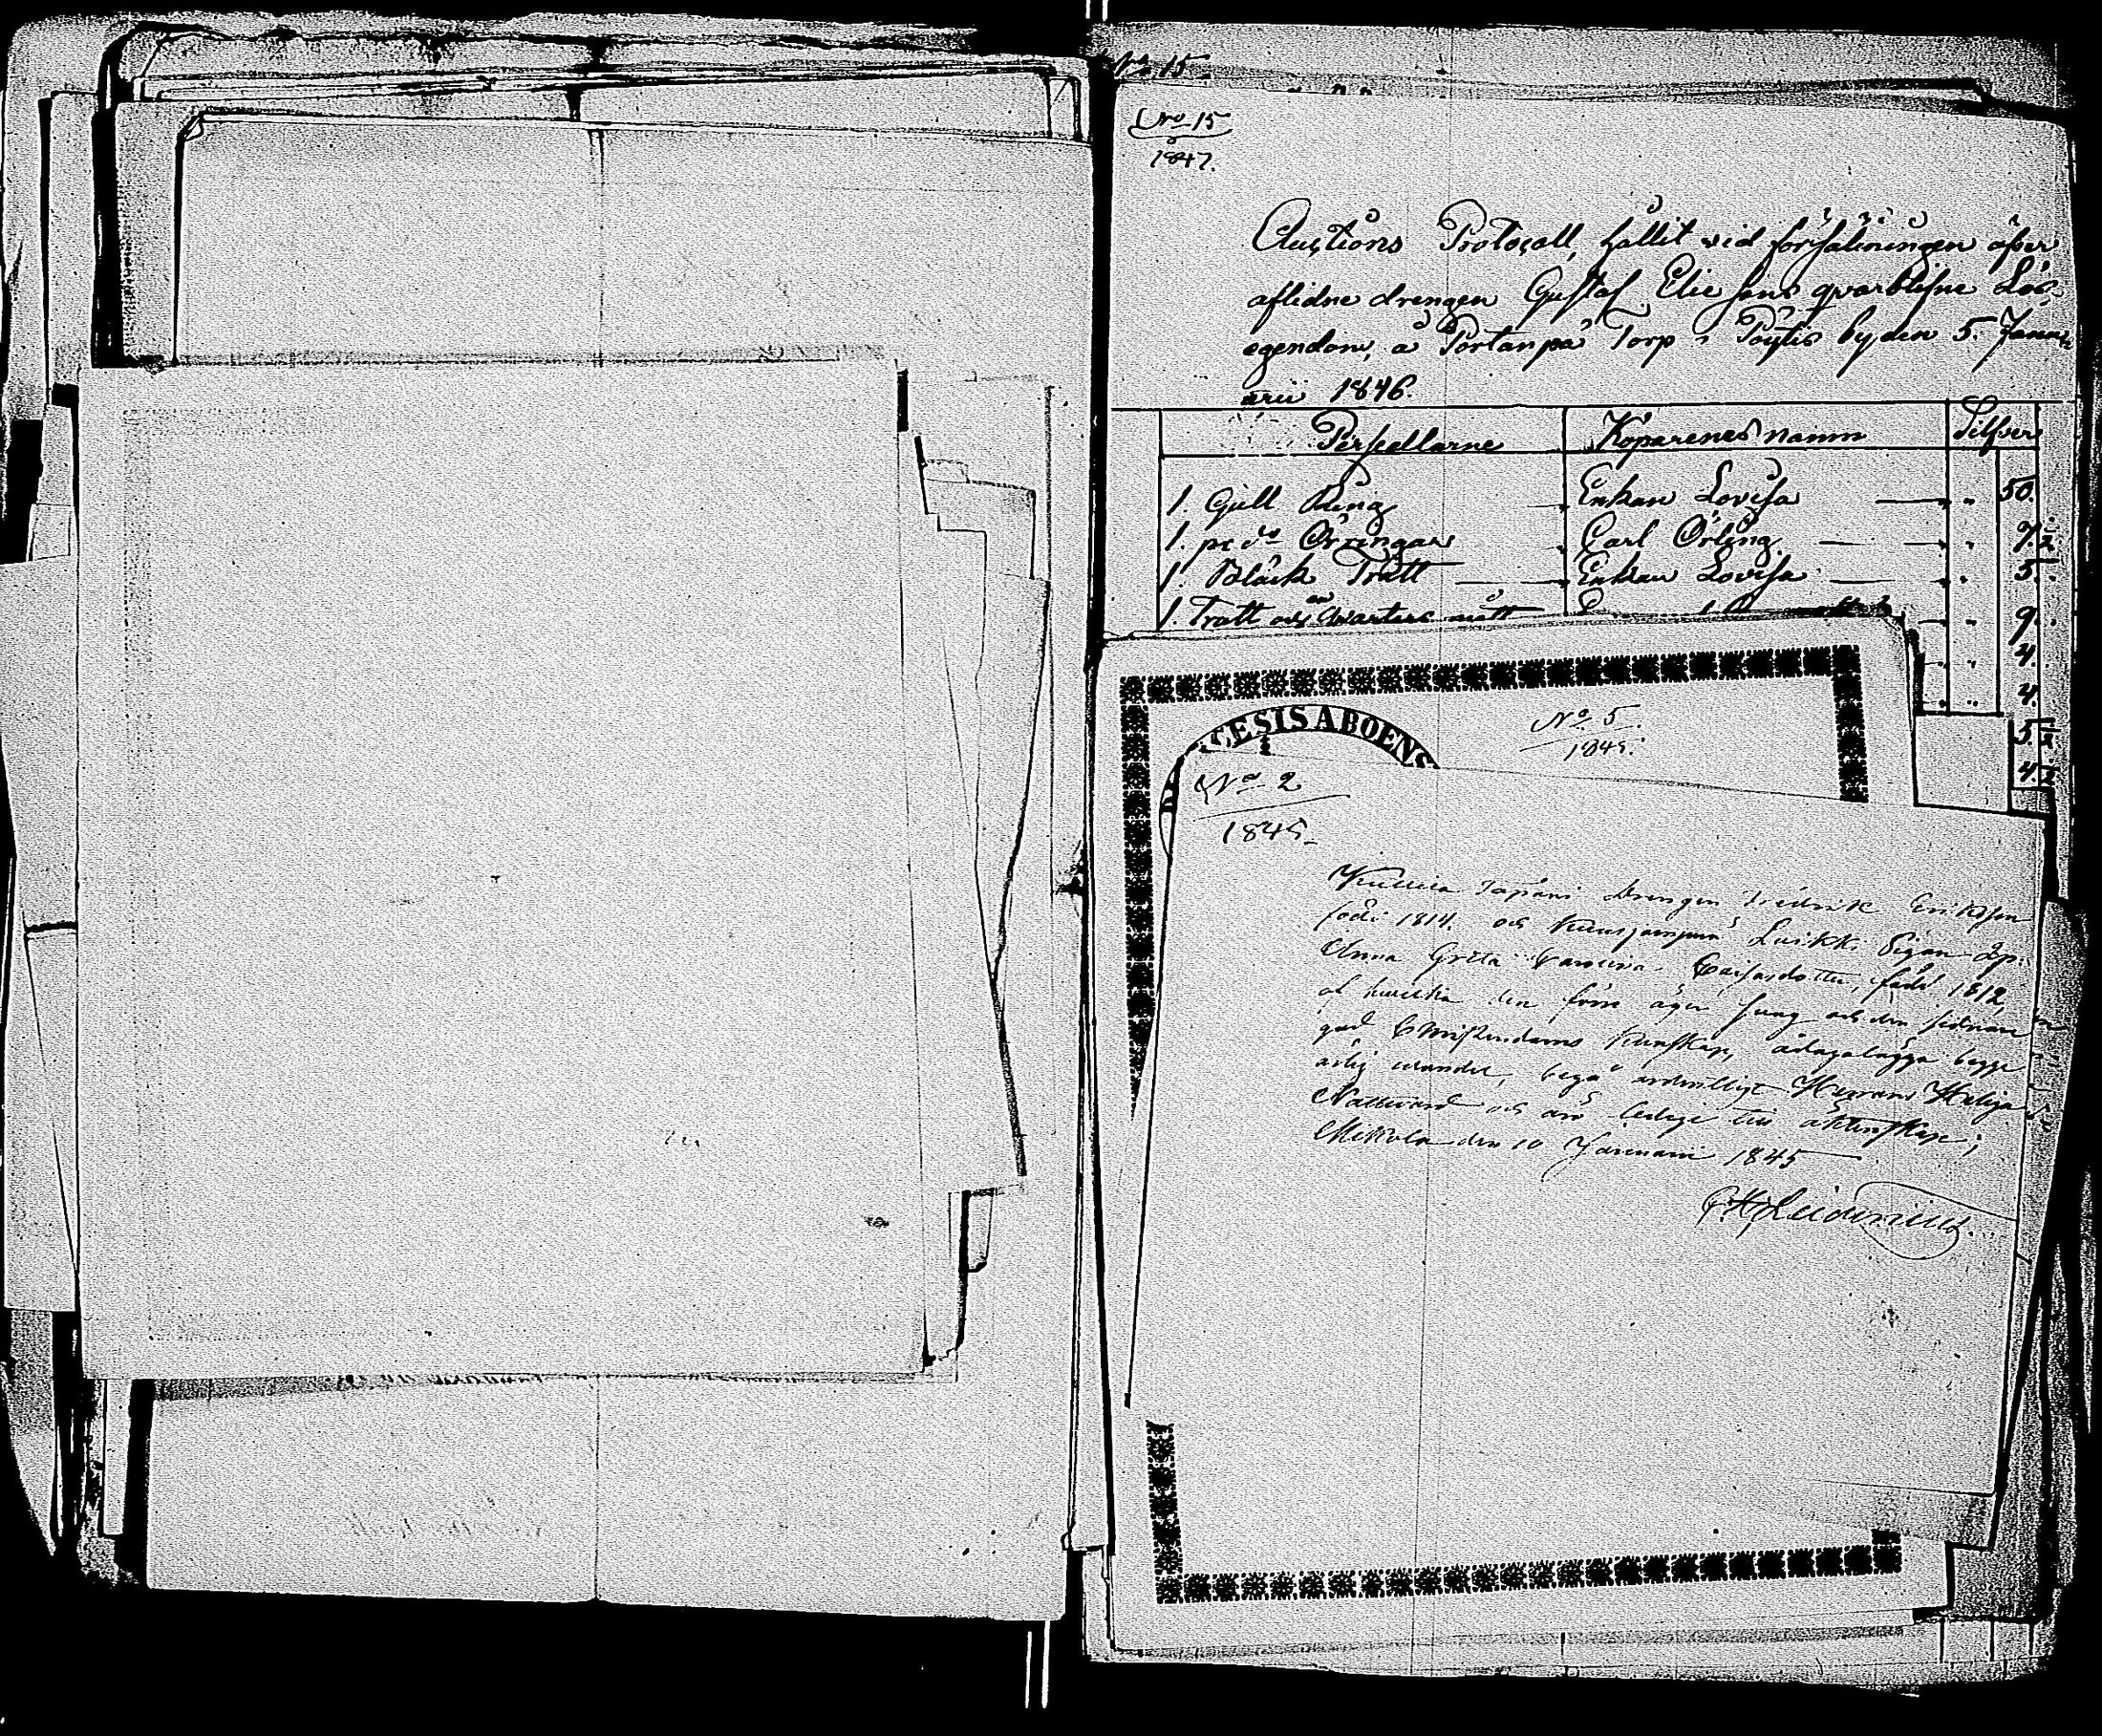 No 15
No 15
1847.
Auctions Protocoll, hållit vid försäliningen öfver
aflidne drengen Gustaf Elie sons qvarblifne Lös
egendom, å Portanpä Torp i Pöytis by, den 5. Janu
arii 1846.
Perscellarne Köparenes namn Silfver
1. Gull Ring Enkan Lovisa 50.
1. pr do Örringar Carl Örling 7. 1/2
1. Bläck Tratt Enkan Lovisa 5.
1. Tratt och qvarters mått 9.
4.
4.
5. 1/2
4. 1/2
CESIS ABOENS
No 5
1845.
No 2
1845.
Tapani Drengen Fredrik Eriksson
född 1814. och Luikki Pigan
Anna Greta Carolina född 1812,
af hvilka den förre äger svag och den sednare
god Christendoms Kunskap, ådagalägga begge
ärlig vandel, begå ordentligt Herrans Heliga
Nattvard och äro ledige till äktenskap;
den 10 Januarii 1845